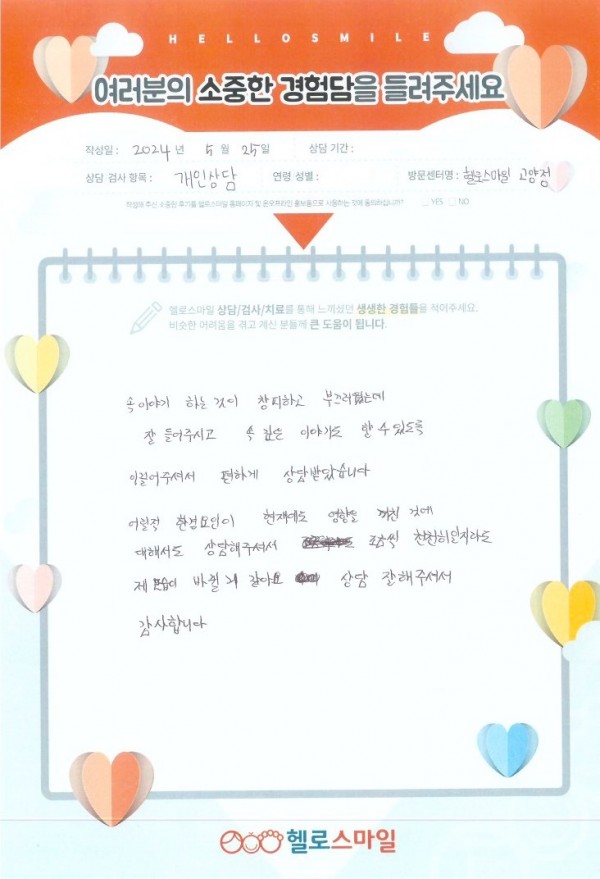 HELLOSMILE
여러분의 소중한 경험담을 들려주세요
작성일 : 2024 년 5 월 25 일 상담 기간 :
상담 검사 항목 : 개인상담 연령 성별 : 방문센터명 : 헬로스마일 고양점
작성해 주신 소중한 후기를 헬로스마일 홈페이지 및 온오프라인 홍보물으로 사용하는 것에 동의하십니까? YES NO
헬로스마일 상담/검사/치료를 통해 느끼셨던 생생한 경험들을 적어주세요.
비슷한 어려움을 겪고 계신 분들께 큰 도움이 됩니다.
속이야기 하는것이 창피하고 부끄러웠는데
잘 들어주시고 속 깊은 이야기도 할 수 있도록
이끌어주셔서 편하게 상담받았습니다
어릴적 환경요인이 현재에도 영향을 끼친 것에
대해서도 상담해주셔서 조금씩 천천히일지라도
제 모습이 바뀔 거 같아요 상담 잘해주셔서
감사합니다
헬로스마일